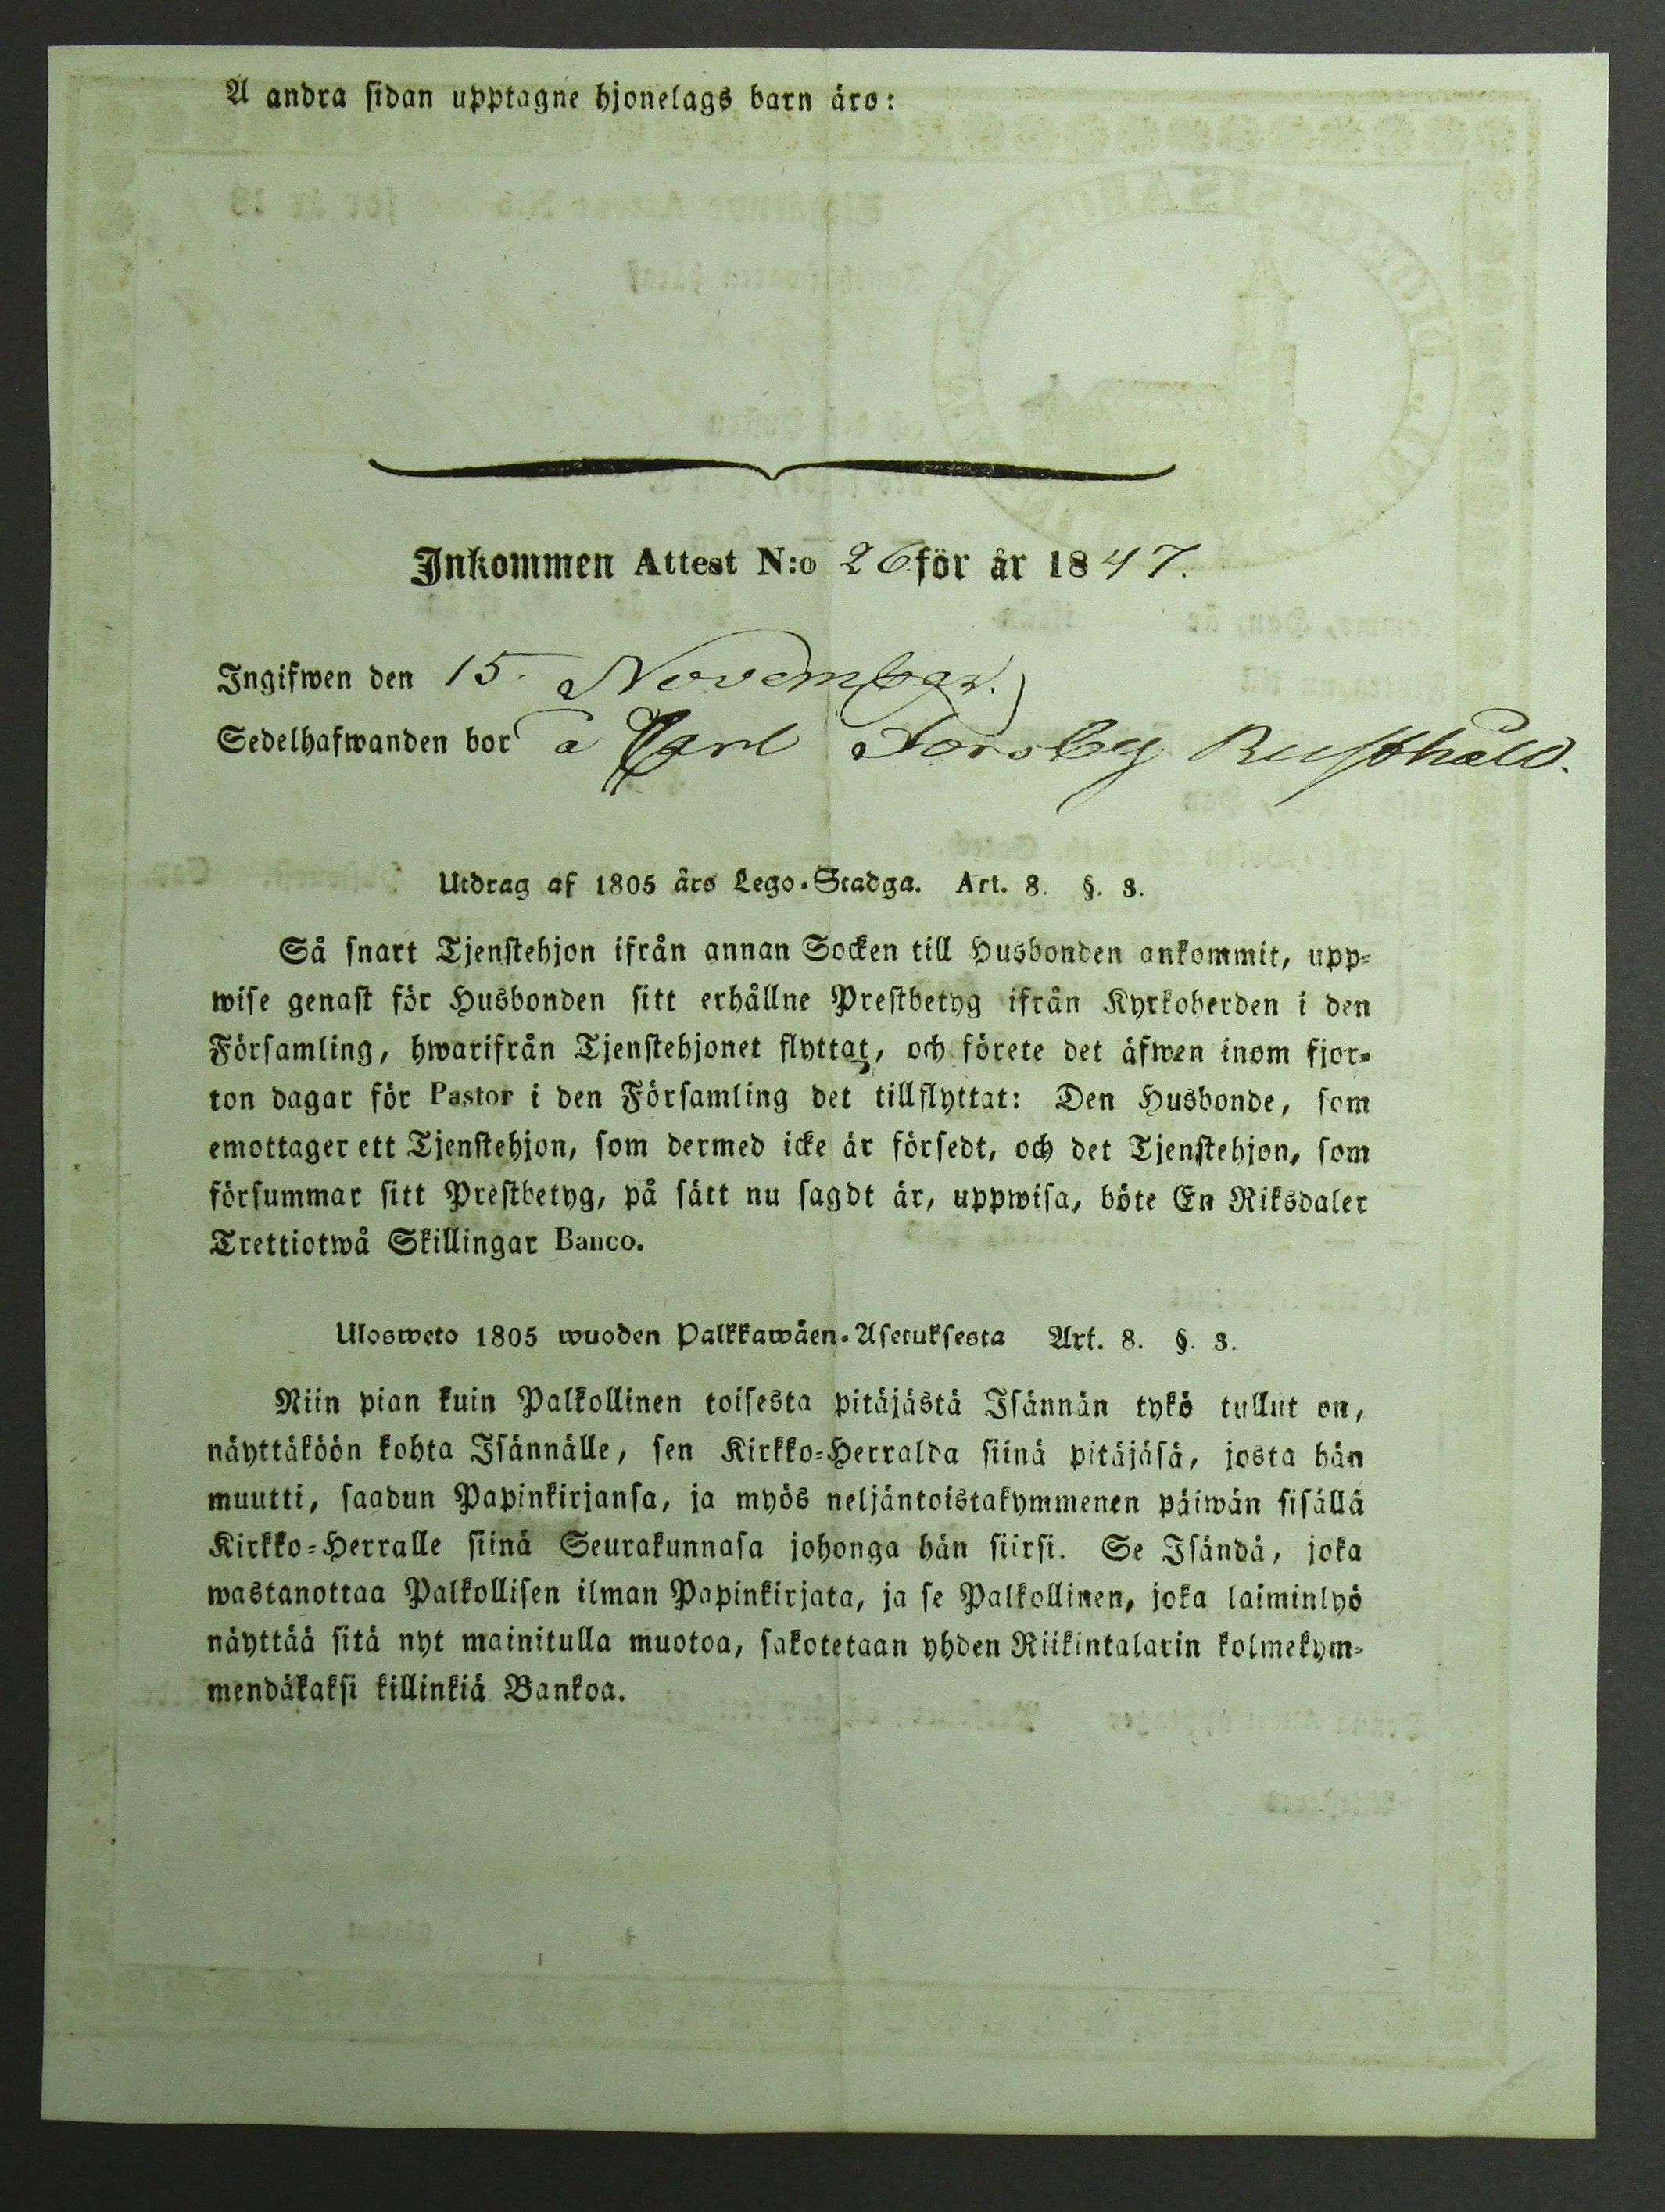 A andra sidan upptagne hjonelags barn äro:
Inkommen Attest N:o 26 för år 1847.
Ingifwen den 15. November.
Sedelhafwanden bor å Carl Forsby Rusthåld.
Utdrag af 1805 års Lego-Stadga. Art. 8. §. 3.
Så snart Tjenstehjon ifrån annan Socken till Husbonden ankommit, upp-
wise genast för Husbonden sitt erhållne Prestbetyg ifrån Kyrkoherden i den
Församling, hwarifrån Tjenstehjonet flyttat, och förete det äfwen inom fjor-
ton dagar för Pastor i den Församling det tillflyttat: Den Husbonde, som
emottager ett Tjenstehjon, som dermed icke är försedt, och det Tjenstehjon, som
försummar sitt Prestbetyg, på sätt nu sagdt är, uppwisa, böte En Riksdaler
Trettiotwå Skillingar Banco.
Ulosweto 1805 wuoden Palkkawäen-Asetuksesta Art. 8. §. 3.
Niin pian kuin Palkollinen toisesta pitäjästä Isännän tykö tullut on,
näyttäköön kohta Isännälle, sen Kirkko-Herralda siinä pitäjäsä, josta hän
muutti, saadun Papinkirjansa, ja myös neljäntoistakymmenen päiwän sisällä
Kirkko-Herralle siinä Seurakunnasa johonga hän siirsi. Se Isändä, joka
wastanottaa Palkollisen ilman Papinkirjata, ja se Palkollinen, joka laiminlyö
näyttää sitä nyt mainitulla muotoa, sakotetaan yhden Riikintalarin kolmekym-
mendäkaksi killinkiä Bankoa.